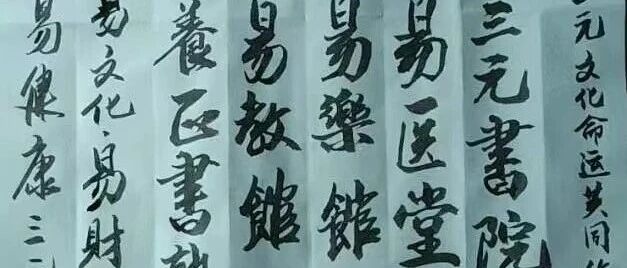 三元文化命运共同
三元書院
易医堂
易樂館
易教館
養正書
易文化·易財
易健康三